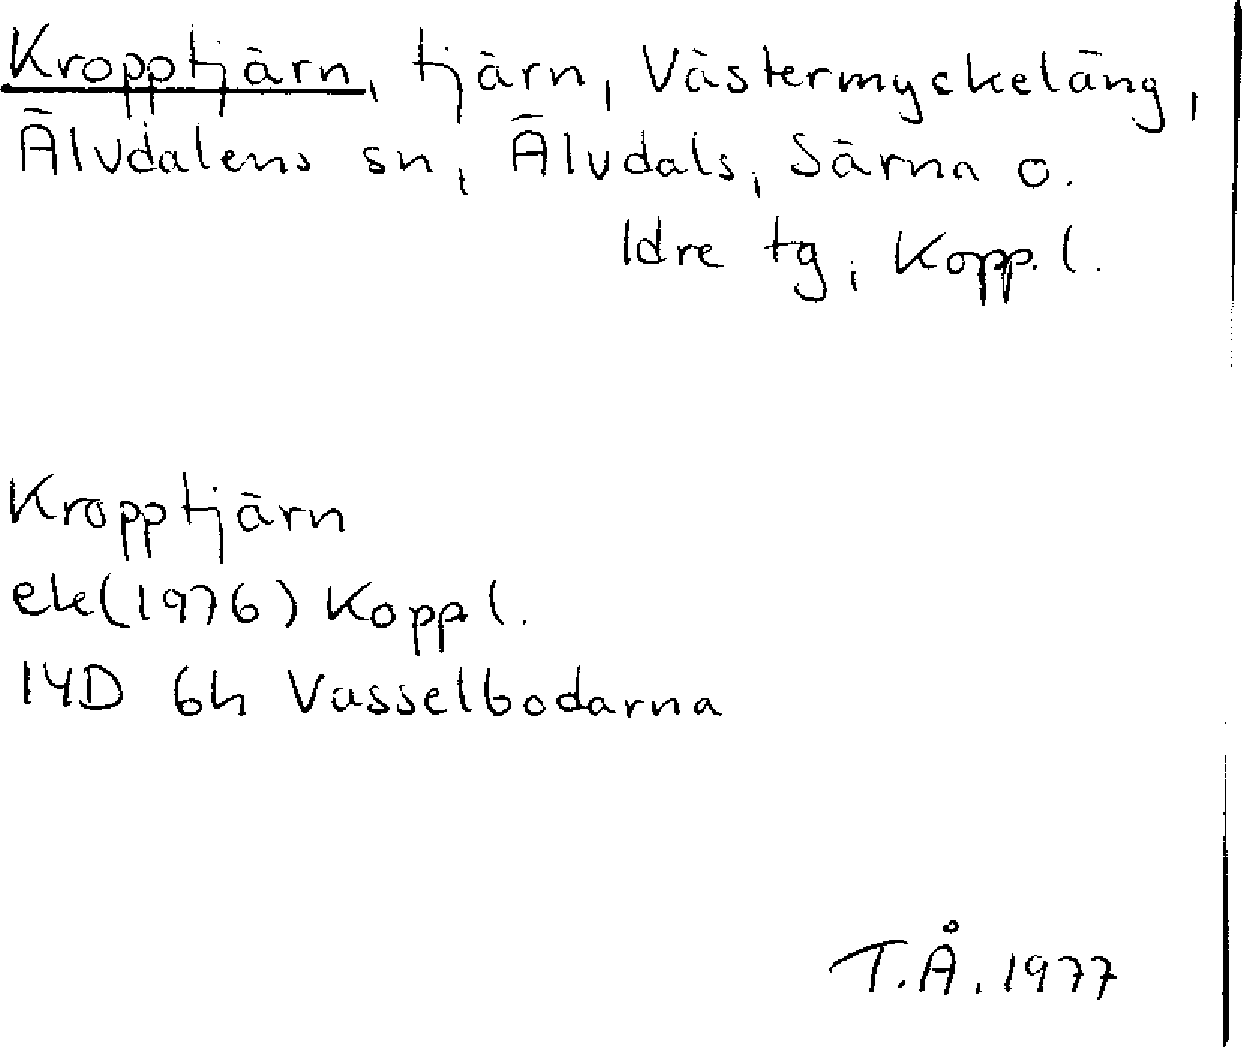 Kropptjärn, tjärn, Västermyckeläng,
Älvdalens sn, Älvdals, Särna o.
Idre tg, Kopp. l.
Kropptjärn
ek(1976) Kopp l.
14D 6h Vasselbodarna
T.Å. 1977